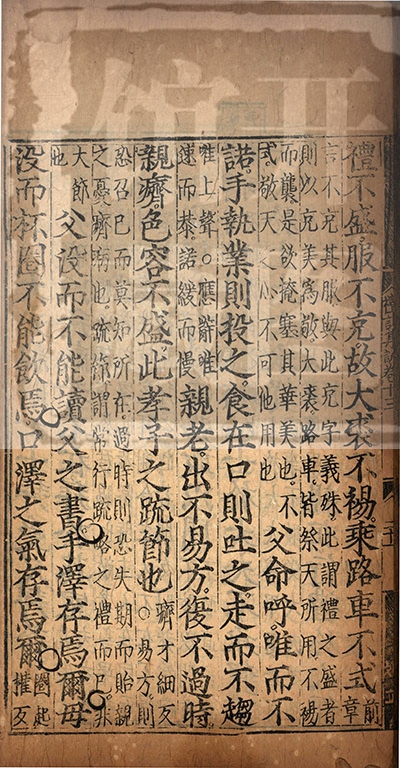 禮不盛服不充故大裘不裼乘路車不式前章
言不充其服與此充字義殊此謂禮之盛者
則以充美為敬大裘路車皆祭天所用不裼
而襲是欲掩塞其華美也不
式敬天之心不可他用也
父命呼唯而不
諾手執業則投之食在口則吐之走而不趨
唯上聲○應辭唯
速而恭諾緩而慢
親老出不易方復不過時
親癠色容不盛此孝子之疏節也癠才細反○易方則
恐召己而莫知所在過時則恐失期而貽親
之憂癠病也疏節謂常行疏略之禮而已非
大節也
父没而不能讀父之書手澤存焉爾母
没而杯圈不能飲焉口澤之氣存焉爾圈起權反